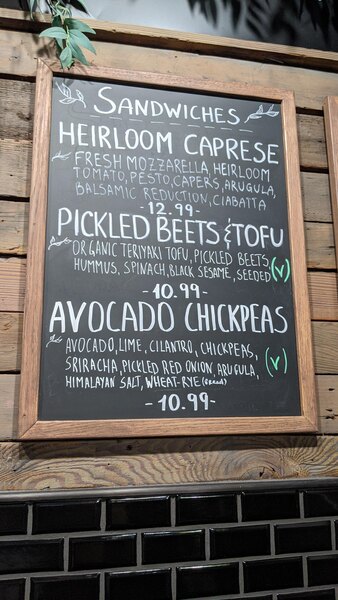 SANDWICHES
HEIRLOOM CAPRESE
FRESH MOZZARELLA, HEIRLOOM
TOMATO, PESTO, CAPERS, ARUGULA,
BALSAMIC REDUCTION, CIABATTA
-12.99-
PICKLED BEETS & TOFU
ORGANIC TERIYAKI TOFU, PICKLED BEETS,
HUMMUS, SPINACH, BLACK SESAME, SEEDED (V)
-10.99-
AVOCADO CHICKPEAS
AVOCADO, LIME, CILANTRO, CHICKPEAS,
SRIRACHA, PICKLED RED ONION, ARUGULA, (V)
HIMALAYAN SALT, WHEAT-RYE (BREAD)
-10.99-